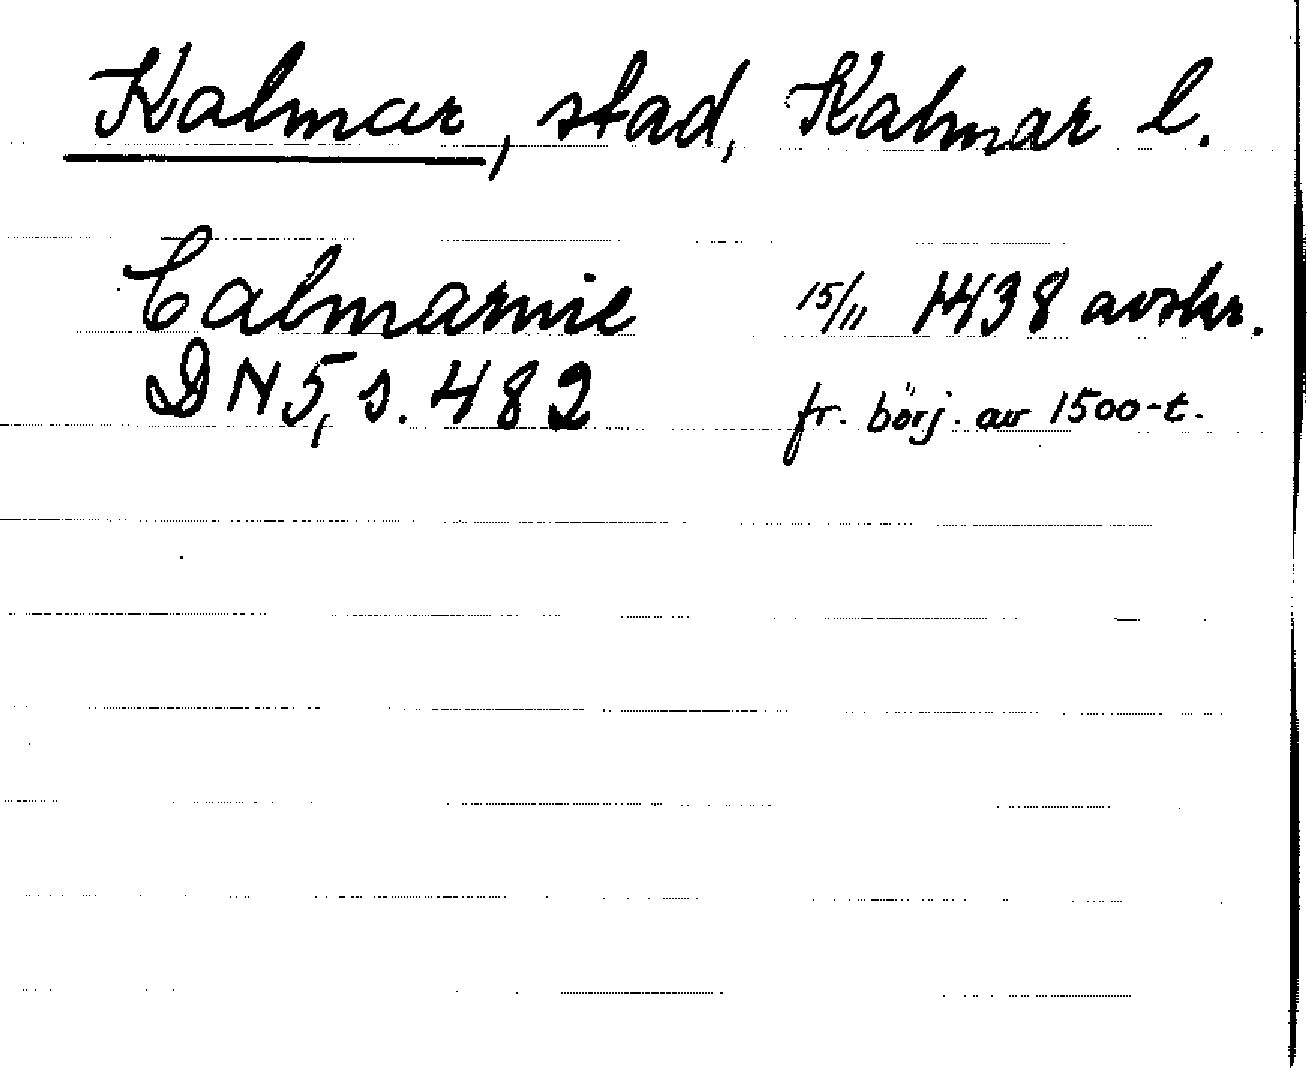 Kalmar, stad, Kalmar l.
Calmarnie 15/11 1438 avskr.
DN5, s. 482 fr. börj. av 1500-t.